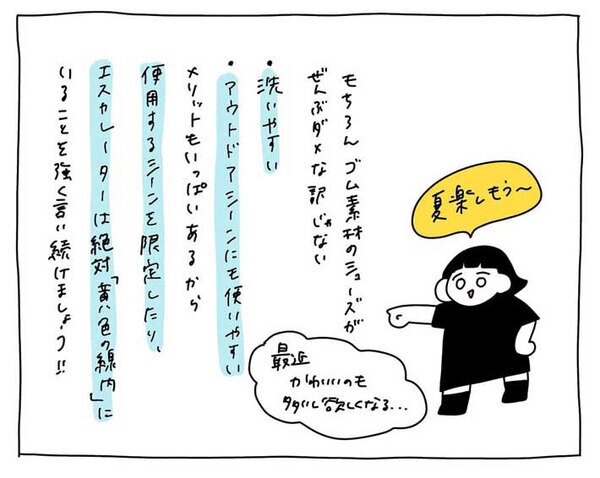 もちろん ゴム素材のシューズが
ぜんぶダメな訳じゃない
・洗いやすい
・アウトドアシーンにも使いやすい
メリットもいっぱいあるから
使用するシーンを限定したり、
エスカレーターは絶対「黄色の線内」に
いることを強く言い続けましょう!!
夏楽しもう〜
最近
かわいいのも
多いし欲しくなる...